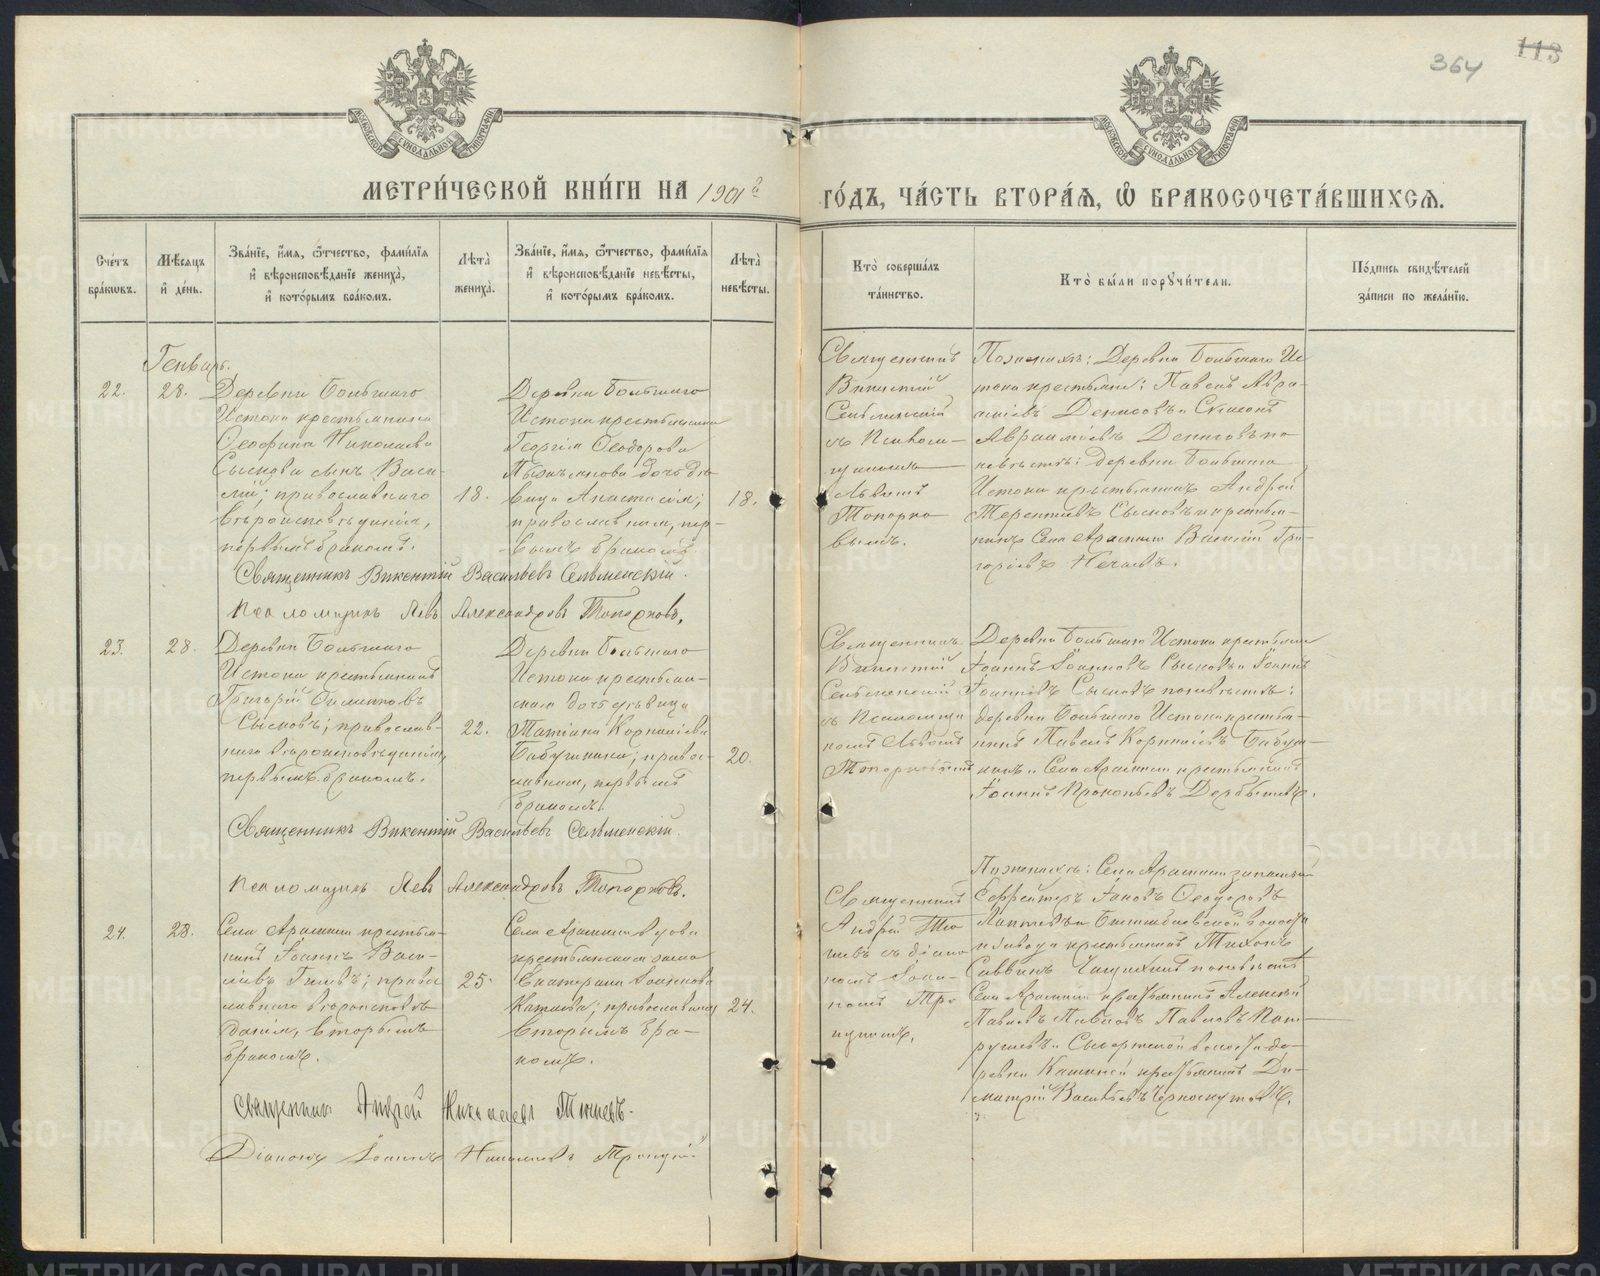 364
113
МОСКОВСКОЙ СѴНОДАЛЬНОЙ ТИПОГРАФІИ
МОСКОВСКОЙ СѴНОДАЛЬНОЙ ТИПОГРАФІИ
МЕТРИ́ЧЕСКОЙ КНИ́ГИ НА 1901й ГО́ДЪ, ЧА́СТЬ ВТОРА́Я, Ѽ БРАКОСОЧЕТА́ВШИХСЯ.
Сче́тъ бра́кѡвъ.
Мѣ́сяцъ и҆ де́нь.
Зва́нїе, и҆́мя, ѻ҆́тчество, фами́лїя и҆ вѣроисповѣ́данїе жениха̀, и҆ кото́рымъ бра́комъ.
Лѣ́та жениха̀.
Зва́нїе, и҆́мя, ѻ҆́тчество, фами́лїя и҆ вѣроисповѣ́данїе невѣ́сты, и҆ кото́рымъ бра́комъ.
Лѣ́та невѣ́сты.
Кто̀ соверша́лъ та́инство.
Кто̀ бы́ли порꙋчи́тели.
По́дпись свидѣ́телей за́писи по жела́нїю.
Генварь.
22.
28.
Деревни Большаго
Истока крестьянина
Ѳеофана Николаева
Сыскова сынъ Васи-
лій; православнаго
вѣроисповѣданія,
первымъ бракомъ.
18.
Деревни Большаго
Истока крестьянина
Георгія Ѳеодорова
дочь дѣ-
вица Анастасія;
православная, пер-
вымъ бракомъ.
18.
Священникъ
Викентій
Сельменскій
съ Псалом-
щикомъ
Львомъ
Топорко-
вымъ.
По женихѣ: Деревни Большаго Ис
тока крестьяне: Павелъ Авра-
аміевъ Денисовъ и Симеонъ
Авраамовъ Денисовъ по
невѣстѣ: деревни Большаго
Истока крестьянинъ Андрей
Терентьевъ Сысковъ и крестья-
нинъ Села Арамили Василій Гри-
горьевъ Нечаевъ.
Священникъ Викентій Васильевъ Сельменскій.
Псаломщикъ Левъ Александровъ Топорковъ.
23.
28.
Деревни Большаго
Истока крестьянинъ
Григорій
Сысковъ; православ-
наго вѣроисповѣданія,
первымъ бракомъ.
22.
Деревни Большаго
Истока крестьян-
ская дочь дѣвица
Татіана Корниліева
Бабушкина; правос-
лавная, первымъ
бракомъ.
20.
Священникъ
Викентій
Сельменскій
съ Псаломщи
комъ Львомъ
Топорковымъ
Деревни Большаго Истока крестьяне
Іоаннъ Іоанновъ Сысковъ и Іоаннъ
Іоанновъ Сысковъ по невѣстѣ:
деревни Большаго Истока крестья-
нинъ Павелъ Корниліевъ Бабуш-
кинъ и Села Арамили крестьянинъ
Іоаннъ Прокопьевъ Дерябинъ.
Священникъ Викентій Васильевъ Сельменскій.
Псаломщикъ Левъ Александровъ Топорковъ.
24.
28.
Села Арамили крестья-
нинъ Іоаннъ Васи-
льевъ Гилевъ; право
славнаго вѣроисповѣ
данія, вторымъ
бракомъ.
25.
Села Арамили вдова
крестьянская жена
Екатерина
православная,
вторымъ бра-
комъ.
24.
Священникъ
Андрей Тю
невъ съ діако
номъ Іоан-
номъ Тро
ицкимъ.
По женихѣ: Села Арамили запасный
Ефрейторъ Іаковъ Ѳеодоровъ
волости
и завода крестьянинъ Тихонъ
Саввинъ по невѣстѣ
Села Арамили крестьянинъ Алексѣй
Павловъ
и Сысертской волости де-
ревни Кашиной крестьянинъ Ди-
митрій Васильевъ Черноскутовъ.
Священникъ Андрей Николаевъ Тюневъ.
Діаконъ Іоаннъ Троицкій
METRIKI.GASO-URAL.RU